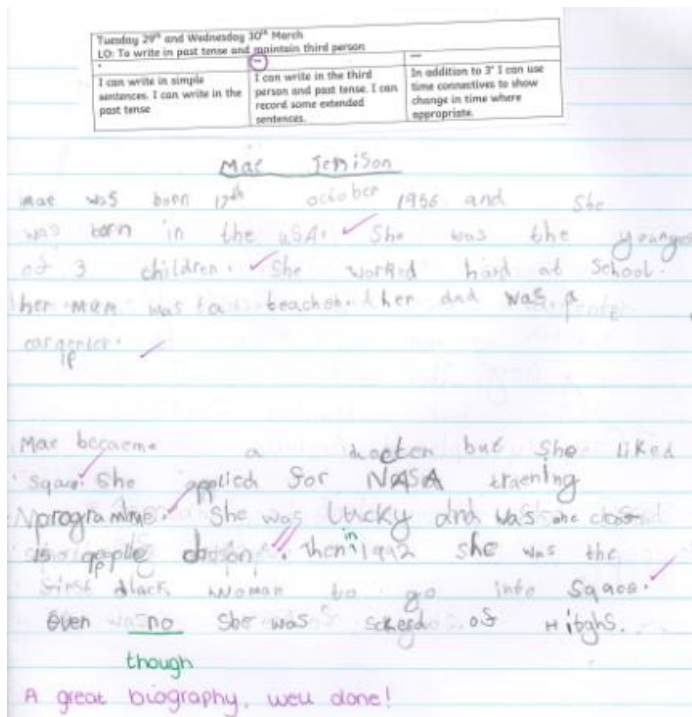 Tuesday 29th and Wednesday 30th March
LO: To write in past tense and maintain third person
* ** ***
I can write in simple sentences. I can write in the past tense
I can write in the third person and past tense. I can record some extended sentences.
In addition to 3* I can use time connectives to show change in time where appropriate.
Mae Jemison
Mae was born 17th october 1956 and she
was born in the USA. She was the younges
of 3 children. She worked hard at School.
her mum was a teacher. her dad was a
carpenter.
Mae became a docter but She liked
Sqace. She applied for NASA traening
programme. She was Lucky and was one
15 people choson. then in 1992 she was the
first black woman to go into Sqace.
Even no She was scherd of Hibghs.
though
A great biography, well done!